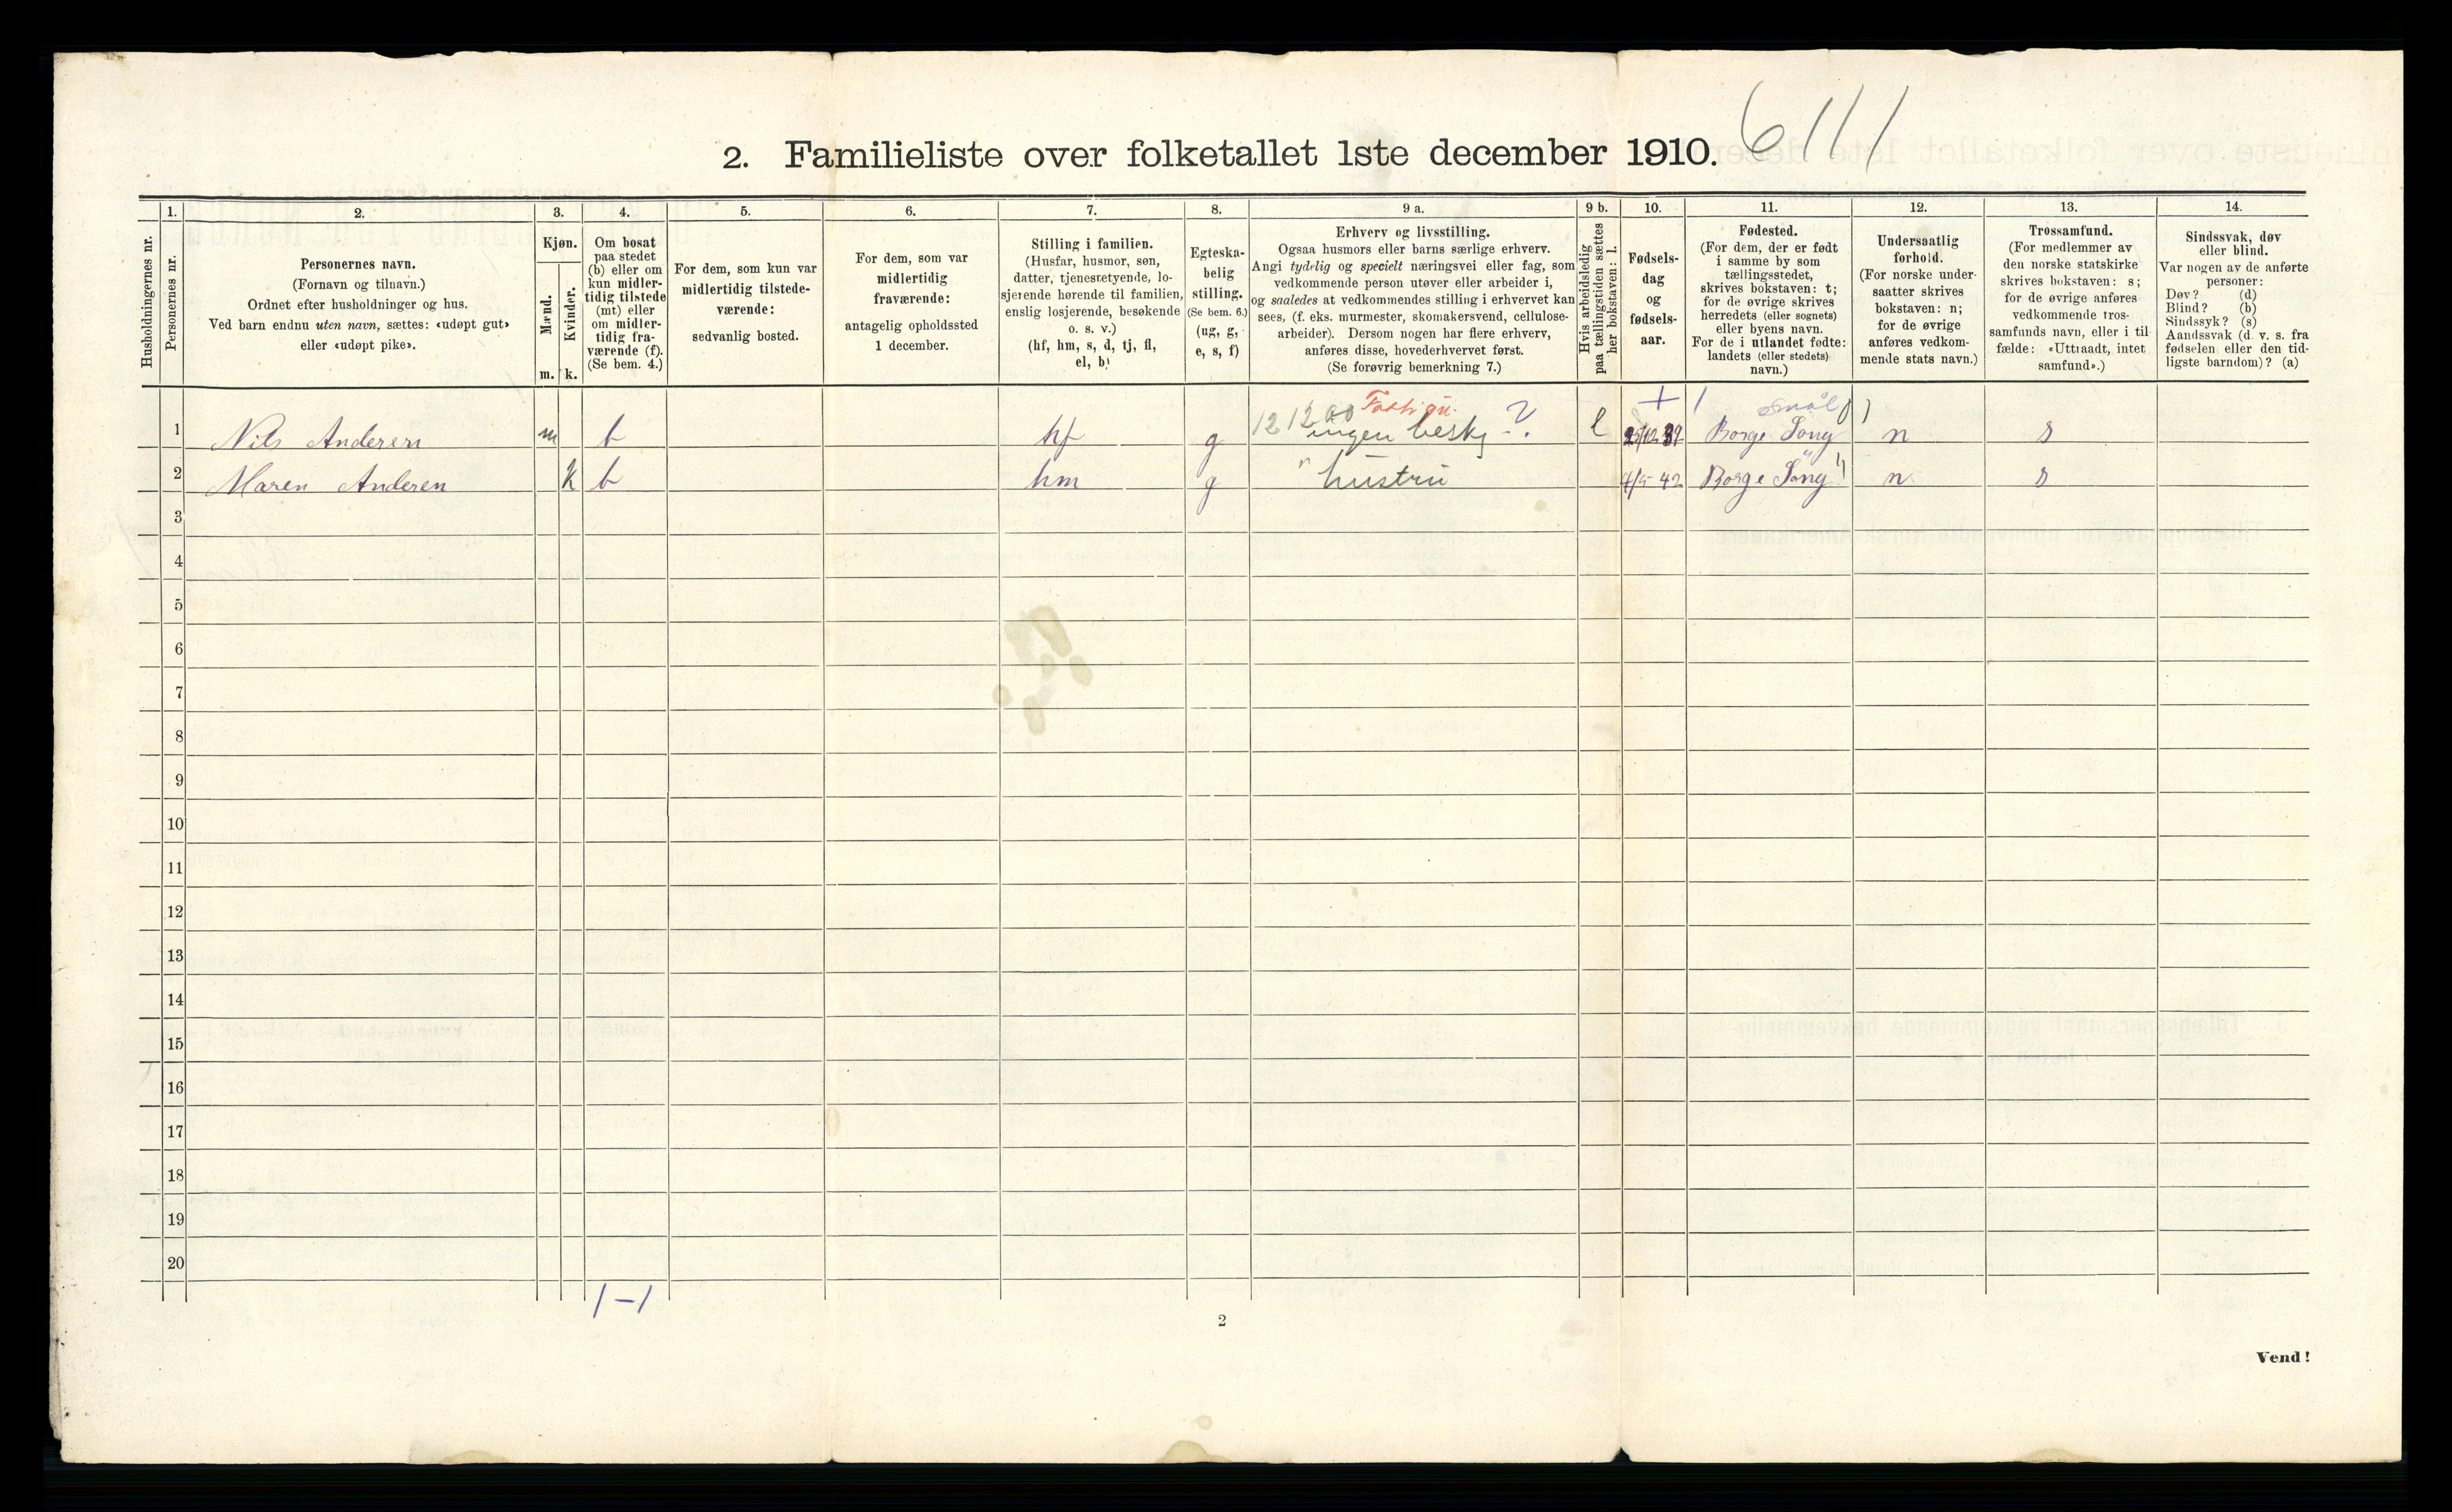 6111
2. Familieliste over folketallet 1ste december 1910.
Husholdningernes nr.
1.
Personernes nr.
2.
Personernes navn.
(Fornavn og tilnavn.)
Ordnet efter husholdninger og hus.
Ved barn endnu uten navn, sættes: «udøpt gut»
eller «udøpt pike».
3.
Kjøn.
Mænd.
Kvinder.
m. k.
4.
Om bosat
paa stedet
(b) eller om
kun midler-
tidig tilstede
(mt) eller
om midler-
tidig fra-
værende (f).
(Se bem. 4.)
5.
For dem, som kun var
midlertidig tilstede-
værende:
sedvanlig bosted.
6.
For dem, som var
midlertidig
fraværende:
antagelig opholdssted
1 december.
7.
Stilling i familien.
(Husfar, husmor, søn,
datter, tjenestetyende, lo-
sjerende hørende til familien,
enslig losjerende, besøkende
o. s. v.)
(hf, hm, s, d, tj, fl,
el, b)
8.
Egteska-
belig
stilling.
(Se bem. 6.)
(ug, g,
e, s, f)
9 a.
Erhverv og livsstilling.
Ogsaa husmors eller barns særlige erhverv.
Angi tydelig og specielt næringsvei eller fag, som
vedkommende person utøver eller arbeider i,
og saaledes at vedkommendes stilling i erhvervet kan
sees, (f. eks. murmester, skomakersvend, cellulose-
arbeider). Dersom nogen har flere erhverv,
anføres disse, hovederhvervet først.
(Se forøvrig bemerkning 7.)
9 b.
Hvis arbeidsledig
paa tællingstiden sættes
her bokstaven: l.
10.
Fødsels-
dag
og
fødsels-
aar.
11.
Fødested.
(For dem, der er født
i samme by som
tællingsstedet,
skrives bokstaven: t;
for de øvrige skrives
herredets (eller sognets)
eller byens navn.
For de i utlandet fødte:
landets (eller stedets)
navn.)
12.
Undersaatlig
forhold.
(For norske under-
saatter skrives
bokstaven: n;
for de øvrige
anføres vedkom-
mende stats navn.)
13.
Trossamfund.
(For medlemmer av
den norske statskirke
skrives bokstaven: s;
for de øvrige anføres
vedkommende tros-
samfunds navn, eller i til-
fælde: «Uttraadt, intet
samfund».)
14.
Sindssvak, døv
eller blind.
Var nogen av de anførte
personer:
Døv? (d)
Blind? (b)
Sindssyk? (s)
Aandssvak (d. v. s. fra
fødselen eller den tid-
ligste barndom)? (a)
1212 ?
1 Nils Andersen m b hf g ingen beskj l Borge n s
2 Maren Andersen k b hm g " hustru 4/5-42 Borge n s
3
4
5
6
7
8
9
10
11
12
13
14
15
16
17
18
19
20
1-1
2
Vend!